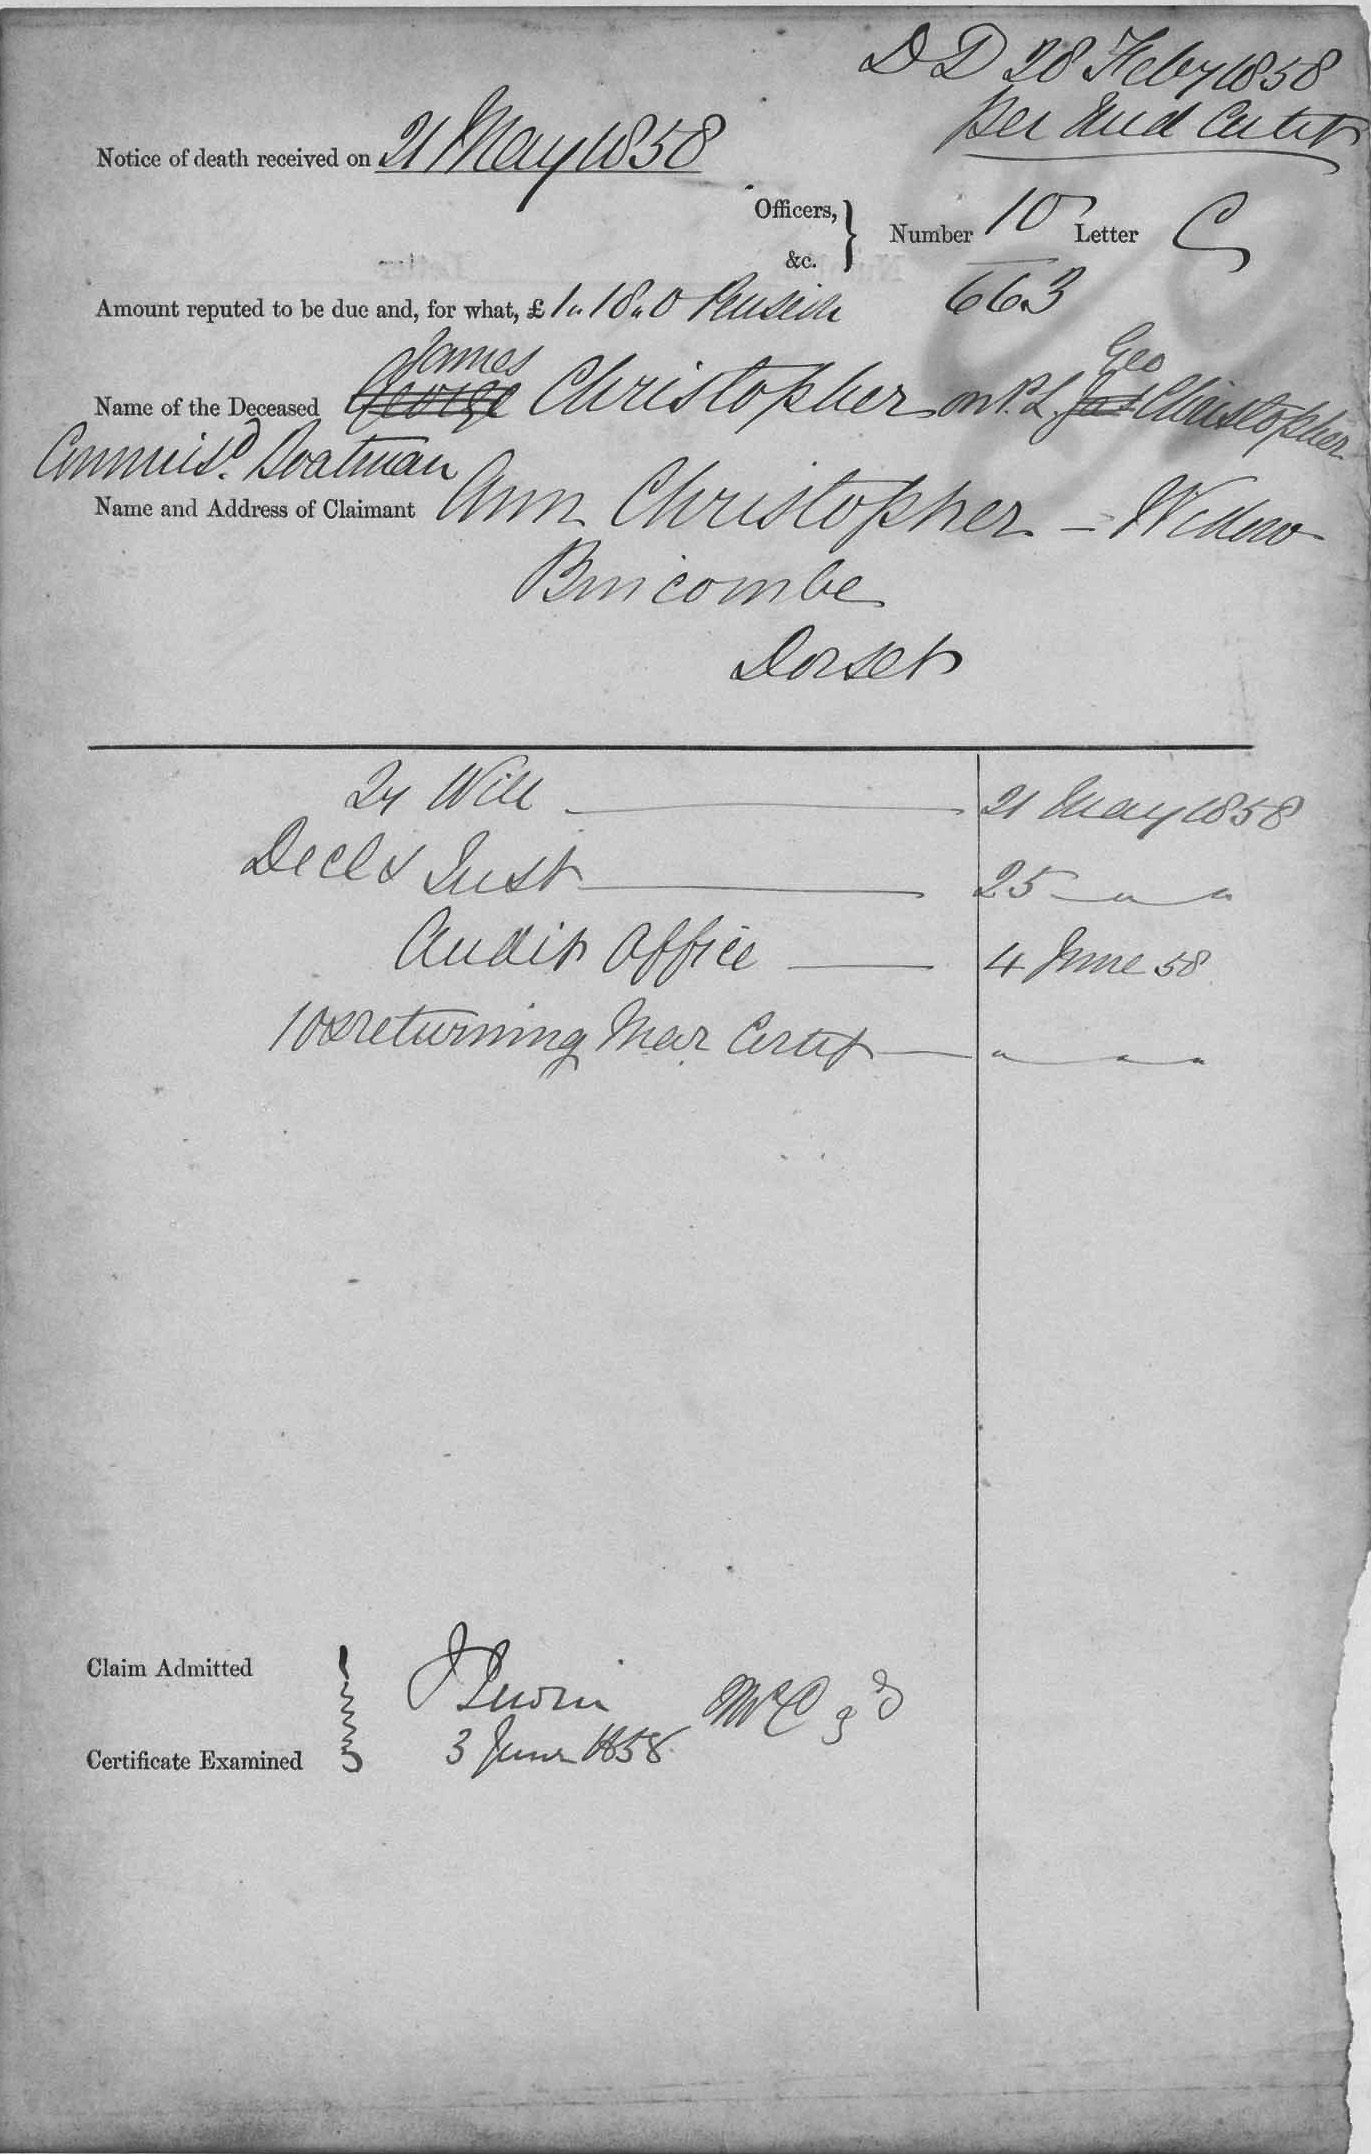 DD 28 Feby 1858
per Aud Certif
Notice of death received on 21 May 1858
Officers, &c. } Number 10 Letter C
663
Amount reputed to be due and, for what, £ 1.. 18.. 0 Pension
James
Name of the Deceased George Christopher on P.L. Jas Christopher
Geo
Commisd. Boatman
Name and Address of Claimant Ann Christopher - Widow
Bincombe
Dorset
Qy Will 21 May 1858
Decl & Inst 25 " "
Audit Office 4 June 58
10 returning Mar Certif " " "
Claim Admitted
3 June 1858
Certificate Examined